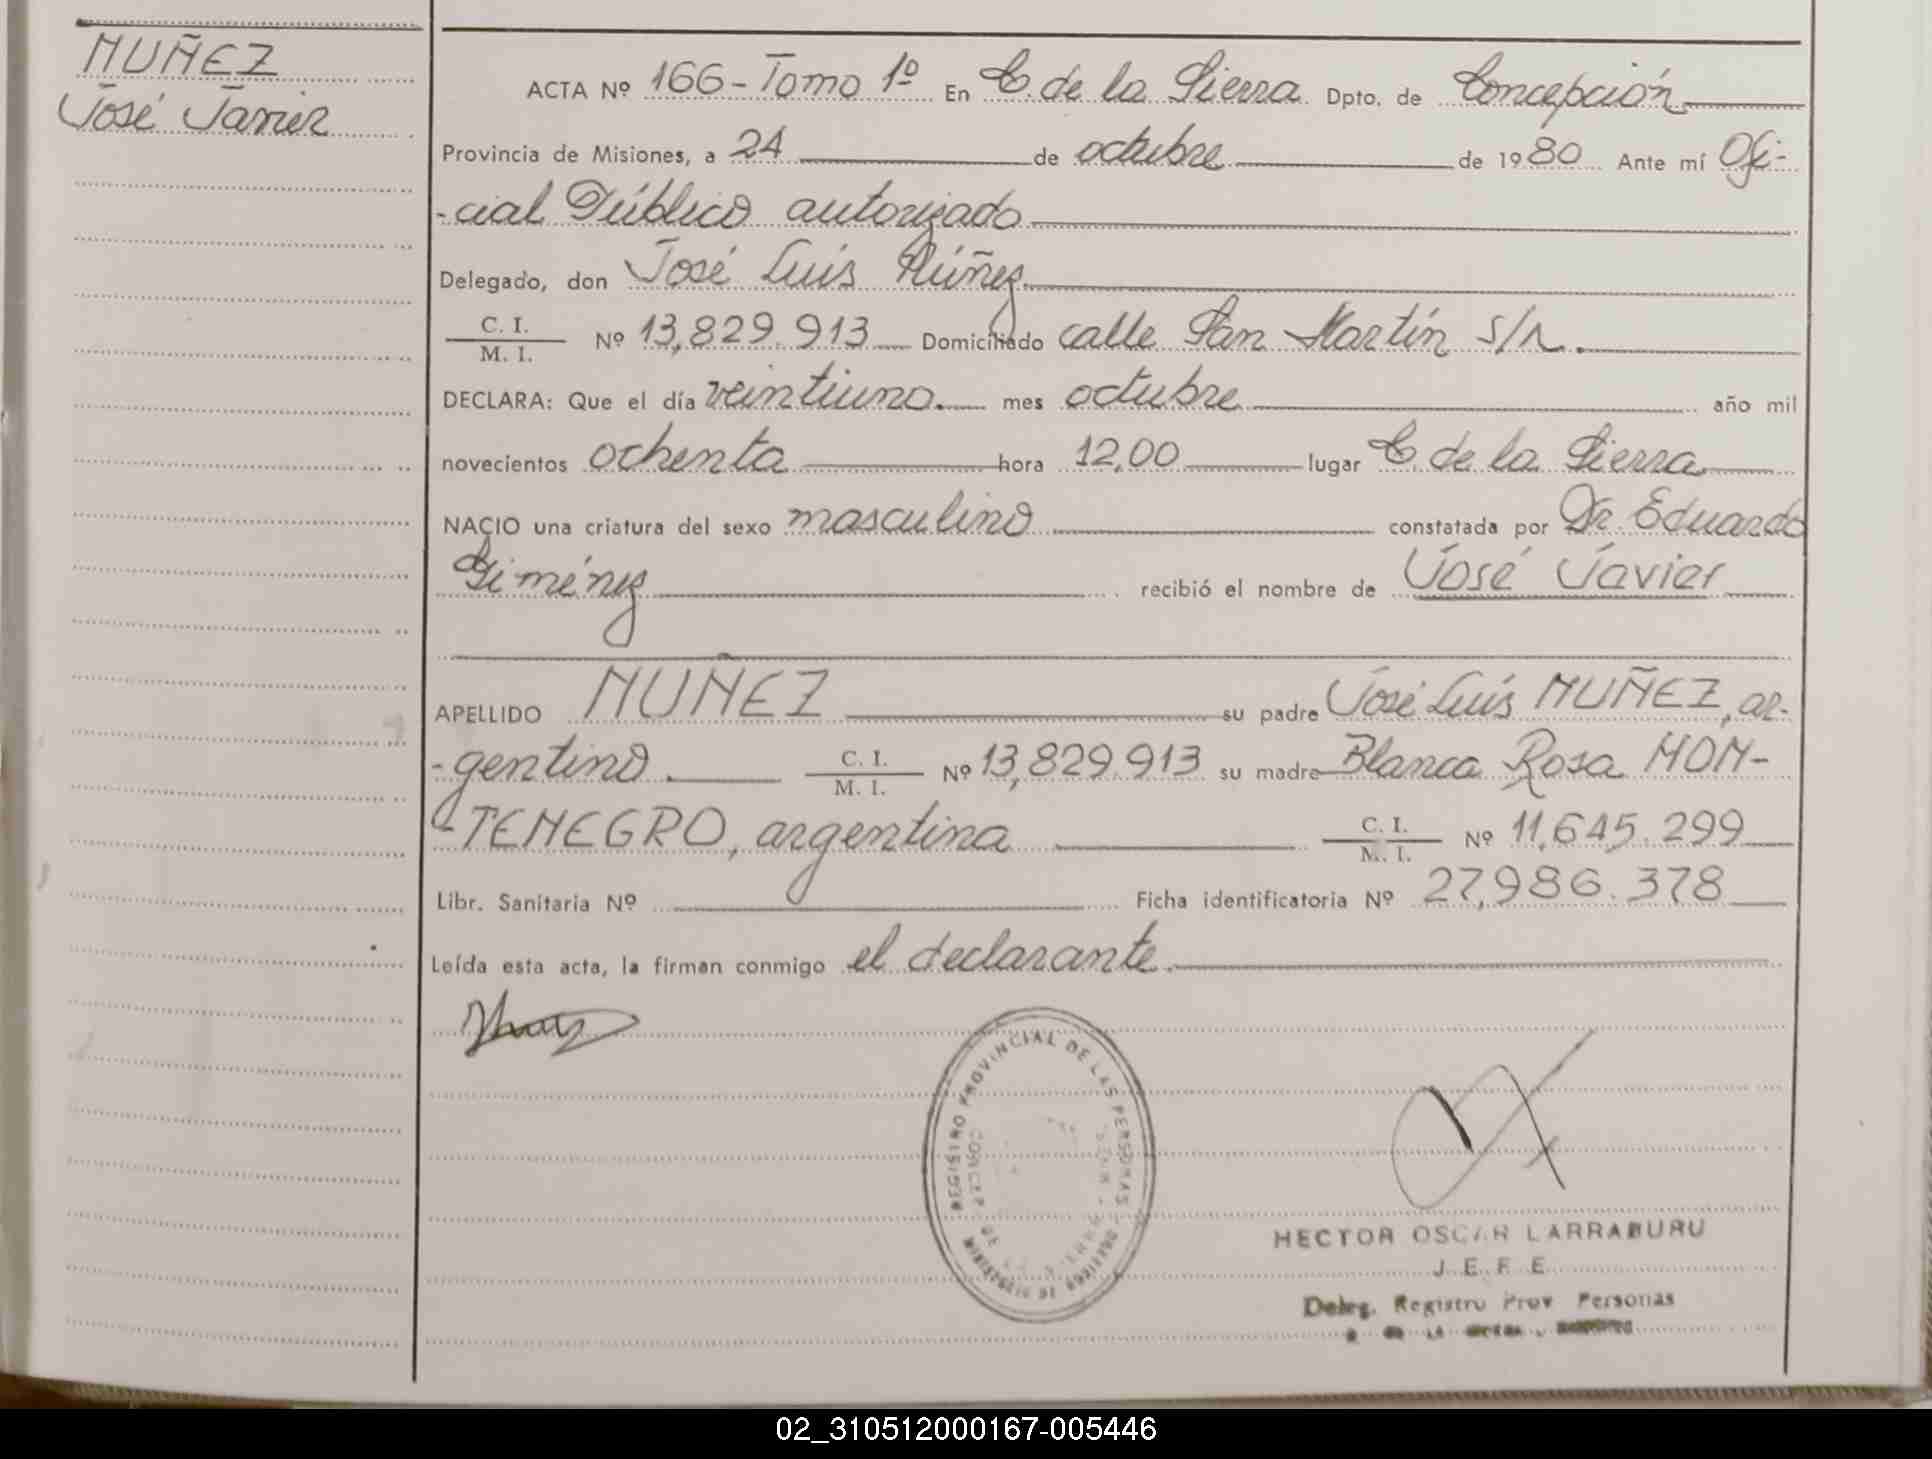 NUÑEZ
José Javier
ACTA Nº 166 - Tomo 1º En C. de la Sierra Dpto. de Concepción
Provincia de Misiones, a 24 de octubre de 1980 Ante mí Ofi-
-cial Público autorizado
Delegado, don José Luis Núñez
C. I.
M. I. Nº 13,829.913 Domiciliado calle San Martín s/n.
DECLARA: Que el día veintiuno. mes octubre año mil
novecientos ochenta hora 12,00 lugar C. de la Sierra
NACIO una criatura del sexo masculino constatada por Dr. Eduardo
Giménez recibió el nombre de José Javier
APELLIDO NUÑEZ su padre José Luís NUÑEZ, ar-
-gentino. C. I.
M. I. Nº 13,829.913 su madre Blanca Rosa MON-
-TENEGRO, argentina C. I.
M. I. Nº 11,645.299
Libr. Sanitaria Nº Ficha identificatoria Nº 27,986.378
Leída esta acta, la firman conmigo el declarante.
REGISTRO PROVINCIAL DE LAS PERSONAS
HECTOR OSCAR LARRABURU
JEFE
Deleg. Registro Prov Personas
02_310512000167-005446